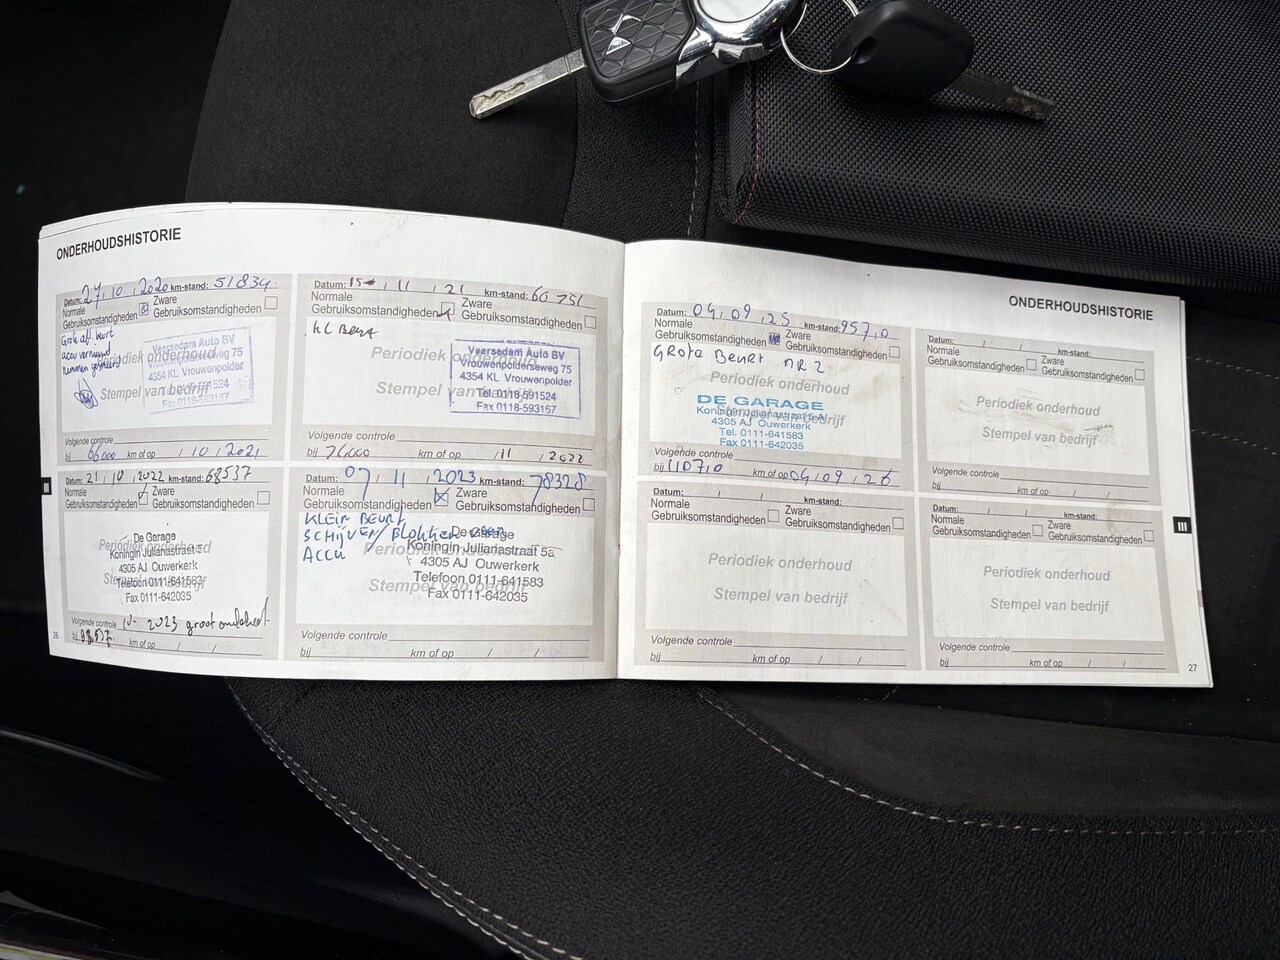 ONDERHOUDSHISTORIE
Datum: 27, 10, 2020 km-stand: 51834
Normale Gebruiksomstandigheden
Zware
accu vernieuwd
Periodiek onderhoud
Stempel van bedrijf
Veersedam Auto BV
Vrouwenpolderseweg 75
4354 KL Vrouwenpolder
Tel. 0118-591524
Fax 0118-593167
Volgende controle
bij 66000 km of op / 10 / 2021
Datum: 15 / 11 / 21 km-stand: 66 751
Normale Gebruiksomstandigheden
Zware Gebruiksomstandigheden
KL Beurt
Periodiek onderhoud
Stempel van bedrijf
Veersedam Auto BV
Vrouwenpolderseweg 75
4354 KL Vrouwenpolder
Tel. 0118-591524
Fax 0118-593167
Volgende controle
bij 76000 km of op / 11 / 2022
Datum: 21, 10, 2022 km-stand: 68537
Normale Gebruiksomstandigheden
Zware
Periodiek onderhoud
Stempel van bedrijf
De Garage
Koningin Julianastraat 5
4305 AJ Ouwerkerk
Telefoon 0111-641583
Fax 0111-642035
Volgende controle 10 - 2023 groot onderhoud
bij km of op / /
Datum: 07, 11, 2023 km-stand: 78328
Normale Gebruiksomstandigheden
Zware Gebruiksomstandigheden
KLEIN BEURT
SCHIJVEN/BLOKKEN
ACCU
Periodiek onderhoud
Stempel van bedrijf
De Garage
Koningin Julianastraat 5a
4305 AJ Ouwerkerk
Telefoon 0111-641583
Fax 0111-642035
Volgende controle
bij km of op / /
26
III
ONDERHOUDSHISTORIE
Datum: 04, 09, 25 km-stand: 957,0
Normale Gebruiksomstandigheden
Zware Gebruiksomstandigheden
GROTE BEURT NR 2
Periodiek onderhoud
Stempel van bedrijf
DE GARAGE
Koningin Julianastraat 5 A
4305 AJ Ouwerkerk
Tel. 0111-641583
Fax 0111-642035
Volgende controle
bij 11070 km of op 04 / 09 / 26
Datum: / / km-stand:
Normale Gebruiksomstandigheden
Zware Gebruiksomstandigheden
Periodiek onderhoud
Stempel van bedrijf
Volgende controle
bij km of op / /
Datum: / / km-stand:
Normale Gebruiksomstandigheden
Zware Gebruiksomstandigheden
Periodiek onderhoud
Stempel van bedrijf
Volgende controle
bij km of op / /
Datum: / / km-stand:
Normale Gebruiksomstandigheden
Zware Gebruiksomstandigheden
Periodiek onderhoud
Stempel van bedrijf
Volgende controle
bij km of op / /
III
27